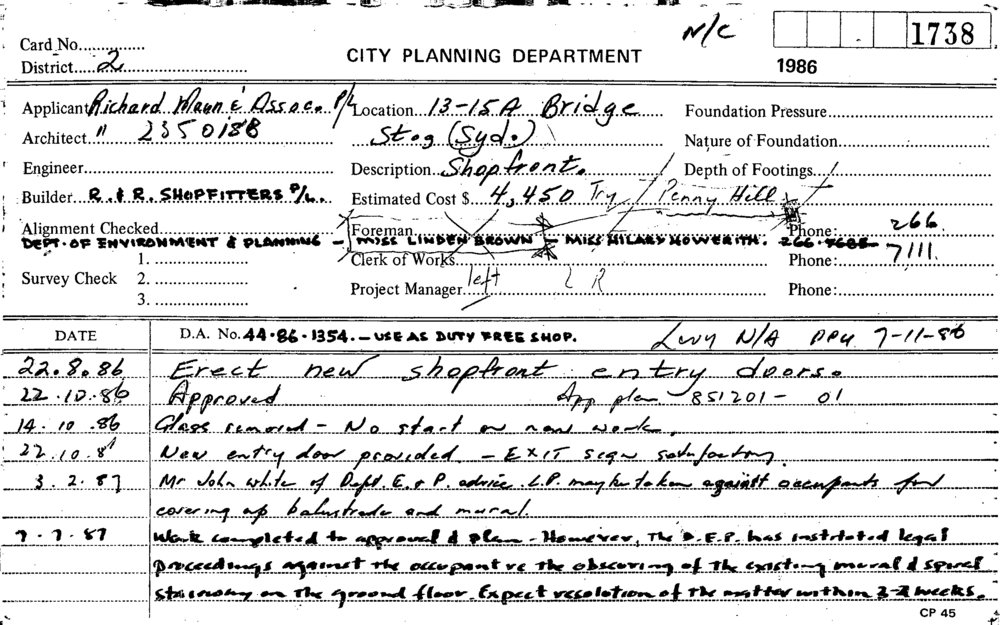 N/C
1738
Card No.
CITY PLANNING DEPARTMENT
District 2
1986
Applicant Richard Mann & Assoc. P/L Location 13-15A Bridge Foundation Pressure
Architect " 2350188 St.g (Syd.) Nature of Foundation
Engineer Description Shopfront. Depth of Footings
Builder R. & R. SHOPFITTERS P/L. Estimated Cost $ 4,450 Try / Penny Hill
Alignment Checked Foreman Phone: 266
DEPT. OF ENVIRONMENT & PLANNING - MISS LINDEN BROWN - MISS HILARY HOWERITH. 266-7688
1. Clerk of Works Phone: 7111.
Survey Check 2. Project Manager left L R Phone:
3.
DATE D.A. No. 44.86.1354. - USE AS DUTY FREE SHOP. N/A 7-11-86
22.8.86 Erect new shopfront entry doors.
22.10.86 Approved App plan 851201-01
14.10.86 Glass removed - No start on new work.
22.10.8 New entry door provided. - EXIT sign satisfactory.
3.2.87 Mr John White of Dept. E. & P. advice L.P. may be taken against occupants for
covering up balustrade and mural.
7.7.87 Work completed to approval & plan - However, The D.E.P. has instituted legal
proceedings against the occupant re the obscuring of the existing mural & spiral
stairway on The ground floor. Expect resolution of the matter within 2-3 weeks.
CP 45